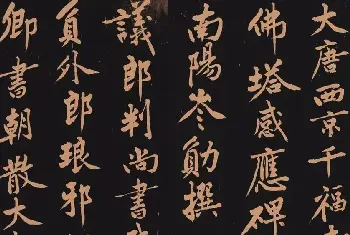 大唐西京千福
佛塔感應碑
南陽岑勛撰
議郎判尚書
員外郎琅邪
卿書朝散大